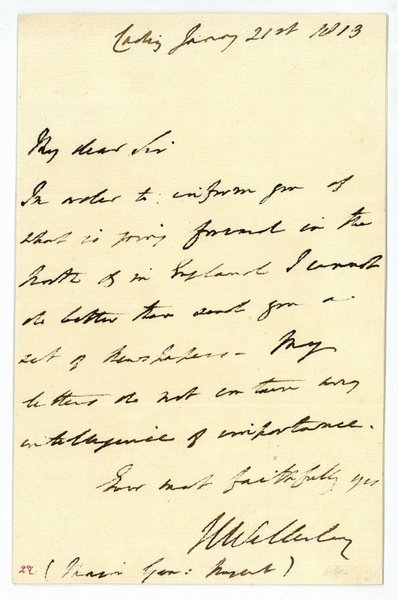 Cadiz Janry 21st 1813
My dear Sir
In order to inform you of
what is going forward in the
North & in England I cannot
do better than send you a
set of Newspapers - My
letters do not contain any
intelligence of importance.
Ever most faithfully yrs
HWellesley
(Major Gen: Nugent)